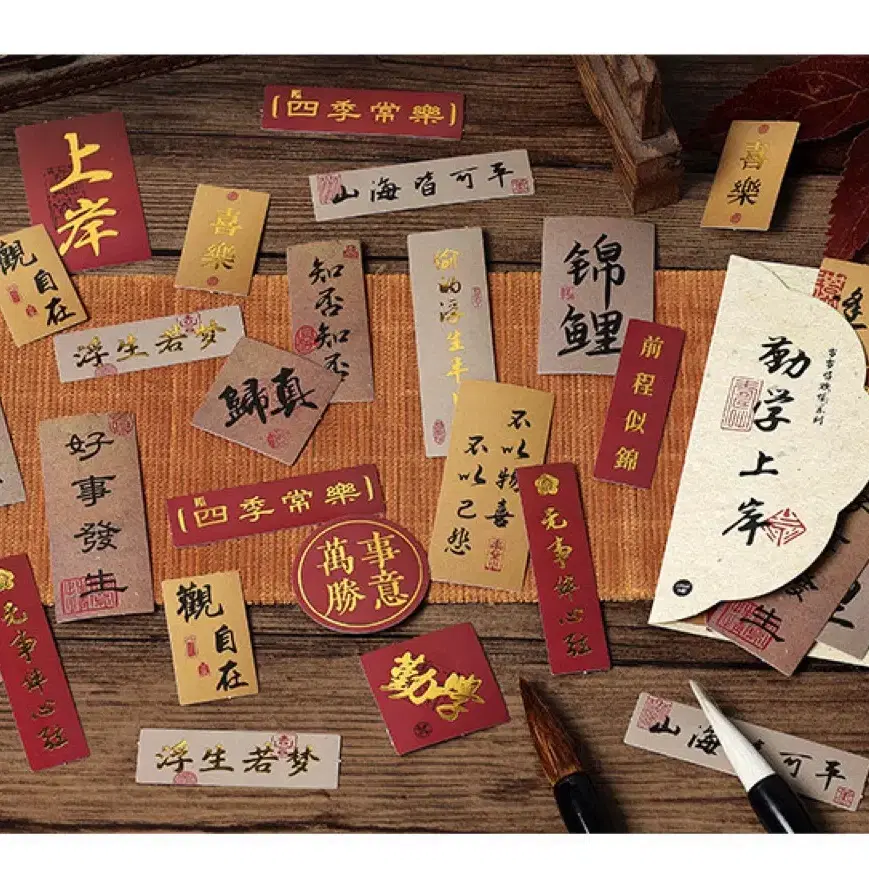 四季常樂
山海皆可平
上岸
喜樂
喜樂
觀自在
知否知否
锦鲤
浮生若梦
歸真
前程似錦
勤学上岸
好事發生
不以物喜
不以己悲
四季常樂
萬事
勝意
无事絆心弦
无事絆心弦
觀自在
勤学
發生
浮生若梦
山海皆可平